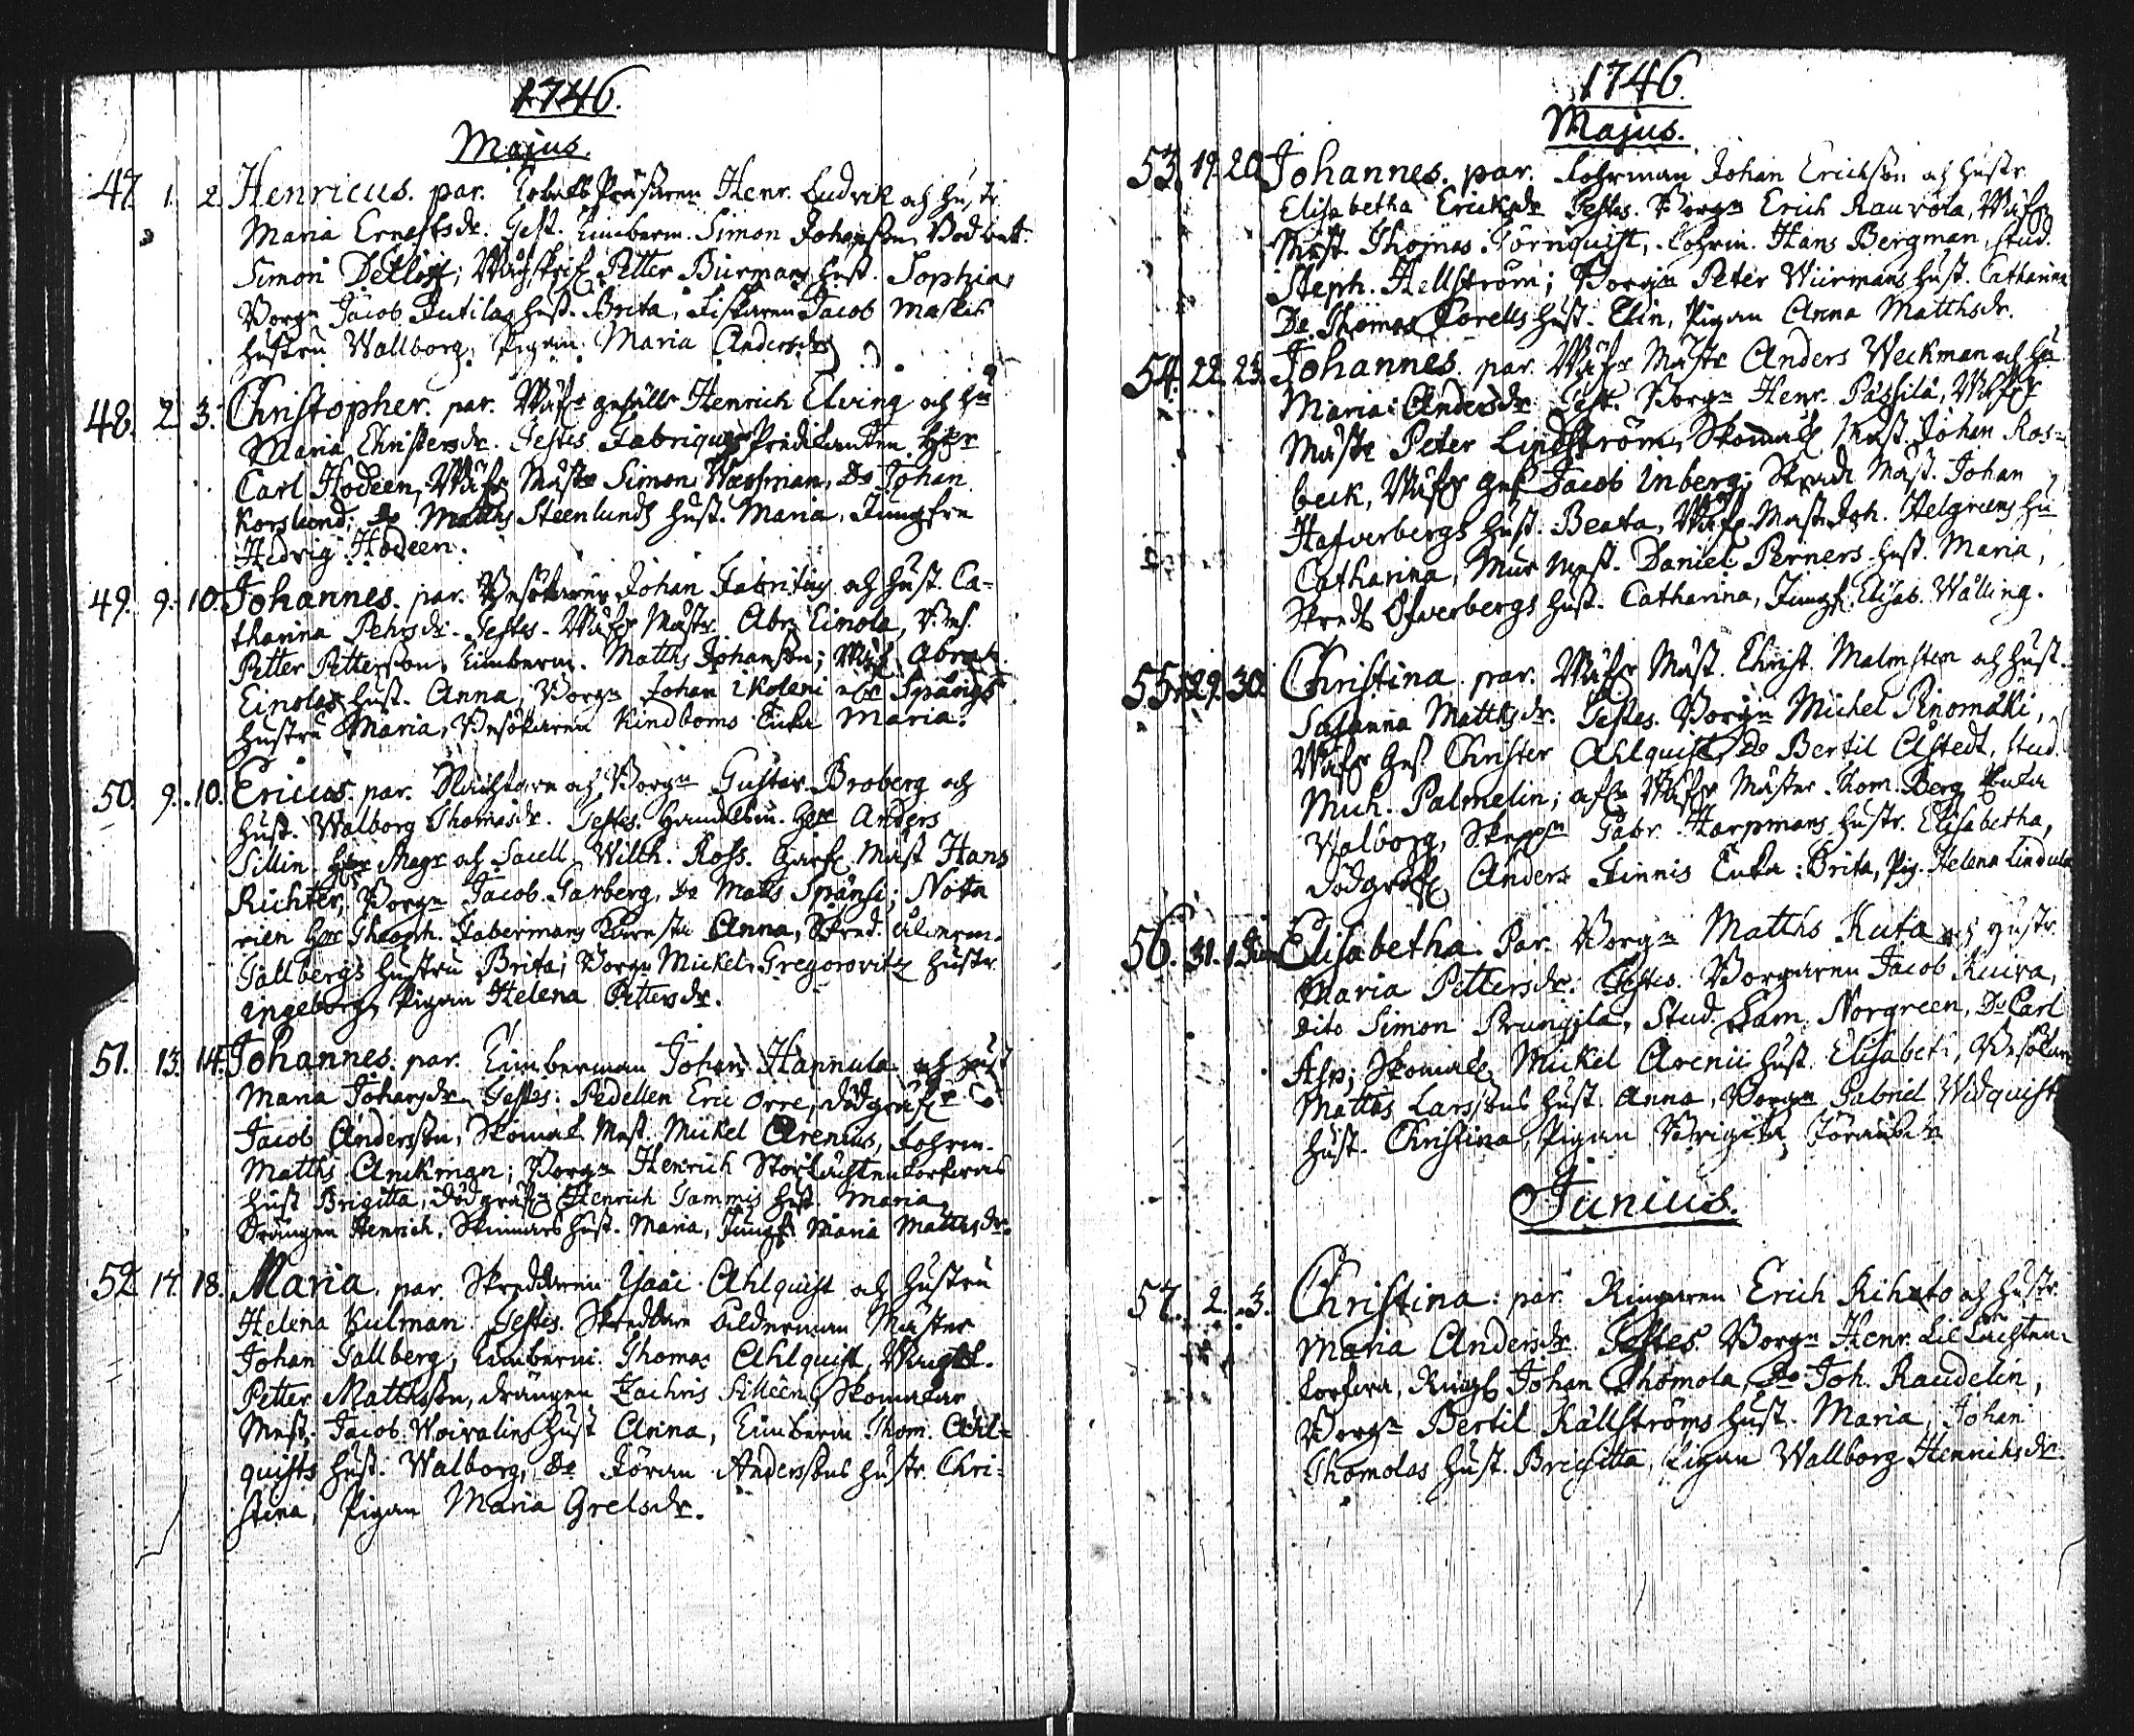 1746.
Majus.
47. 1. 2. Henricus. par. Henr. Ludvik och hustr.
Maria Ernestsdr. Test. Timberm. Simon Johansson,
Simon Petter Burmans hust. Sophia,
Borgn Jacob Jutilas hust. Brita, Fiskaren Jacob Maskus
hustru Wallborg, Pigan Maria Andersdr
48. 2. 3. Christopher. par. gesälls Henrich Elving och hu
Maria Christersdr. Testes. Fabriques Predikanten Herr
Carl Hodeen, Mäst Simon Wassman, Do Johan
Korslund; Do Matths Steenlunds hust. Maria, Jungfru
Hedvig Hodeen.
49. 9. 10. Johannes. par. Besökaren Johan Fabritius och hust. Ca-
tharina Pehrsdr. Testes. Mästr. Abr. Einola,
Petter Petterson, Timberm. Matths Johanson; Abrah.
Einolas hust. Anna, Borgn Johan Ikoleni
hustru Maria, Besökaren Kindboms Enka Maria.
50. 9. 10. Ericus. par. Slachtare och Borgn Gustav Broberg och
hust. Walborg Thomasdr. Testes. Handelsm. Herr Anders
Sillin. Herr Magr och Sacell. Wilh. Ross. Mäst Hans
Richter, Borgn Jacob Garberg, Do Matts Spånsi; Nota
rien Herr Theoph. Fabermans Anna, Skred. Olderm.
Tallbergs hustru Brita; Borgn Mickel Gregorovitz hustr.
Ingeborg, Pigan Helena Pettersdr.
51. 13. 14. Johannes. par. Timberman Johan Hannula och hust
Maria Johansdr. Testes. Pedellen Eric Orre, dödgräf.
Jacob Andersson, Skomak. Mäst. Mickel Arenius, Fohrm.
Matths Anckman; Borgn Henrich Storlächtenkorfwas
hust Brigitta, dödgräf. Henrich Tammis hust Maria,
Drängen Henrich Skinnars hust. Maria, Jungf. Maria Matthsdr.
52. 17. 18. Maria. par. Skreddaren Isaac Ahlquist och hustru
Helena Kulman. Testes. Skreddare Olderman Mäster
Johan Tallberg, Timberm. Thomas Ahlquist,
Petter Matthsson, drängen Zachris Silleen; Skomakar
Mäst. Jacob Woivalins hust Anna, Timberm Thom. Ahl-
quists hust. Walborg, Do Jöran Anderssons hustr. Chri-
stina, Pigan Maria Grelsdr.
1746.
Majus.
53. 19. 20. Johannes. par. Fohrman Johan Erickson och hustr
Elisabetha Ericksdr Testes. Borgn Erich Rauvola,
Mäst. Thomas Törnquist, Fohrm. Hans Bergman, Stud.
Steph. Hellström; Borgn Peter Wiirmans hust. Catharina
Do Thomas Forells hust. Elin, Pigan Anna Matthsdr.
54. 22. 23. Johannes. par. Mästr Anders Weckman och hu
Maria Andersdr Test. Borgn Henr. Passila,
Mästr Peter Lindström, Skomak. Mäst. Johan Ros-
beck, ges. Jacob Inberg; Skredr Mäst. Johan
Hafverbergs hust. Beata, Mäst. Joh. Helgreens hu
Catharina, Mur Mäst. Daniel Perners hust. Maria,
Skredr Ofverbergs hust. Catharina, Jungf. Elisab. Walling.
55. 29. 30. Christina. par. Mäst. Christ. Malmsten och hust.
Susanna Matthsdr. Testes. Borgn Michel Rinomäki,
ges. Christer Ahlquist, Do Bertil Alstedt, Stud.
Mich. Palmelin; Mäster Thom. Berg Enka
Valborg, Gabr. Harpmans hustr. Elisabetha,
dödgräf. Anders Finnis Enka Brita, Pig. Helena Lindula
56. 31. 1 Jun. Elisabetha. Par. Borgn Matths Kuta och hustr.
Maria Pettersdr. Testes. Borgaren Jacob Kuira,
dito Simon Prunnila, Stud. Sam. Norgreen, Do Carl
Alm; Skomak. Mickel Arenii hust. Elisabet,
Matths Larssons hust. Anna, Borgn Gabriel Widquist
hust. Christina, Pigan Jöransdr
Junius.
57. 2. 3. Christina. par. Ringaren Erich Rihato och hustr.
Maria Andersdr Testes. Borgn Henr. Lillächten-
korfwa, Johan Thomola, Do Joh. Raudelin,
Borgn Bertil Källströms hust. Maria, Johan
Thomolas hust. Brigitta, Pigan Wallborg Henriksdr.